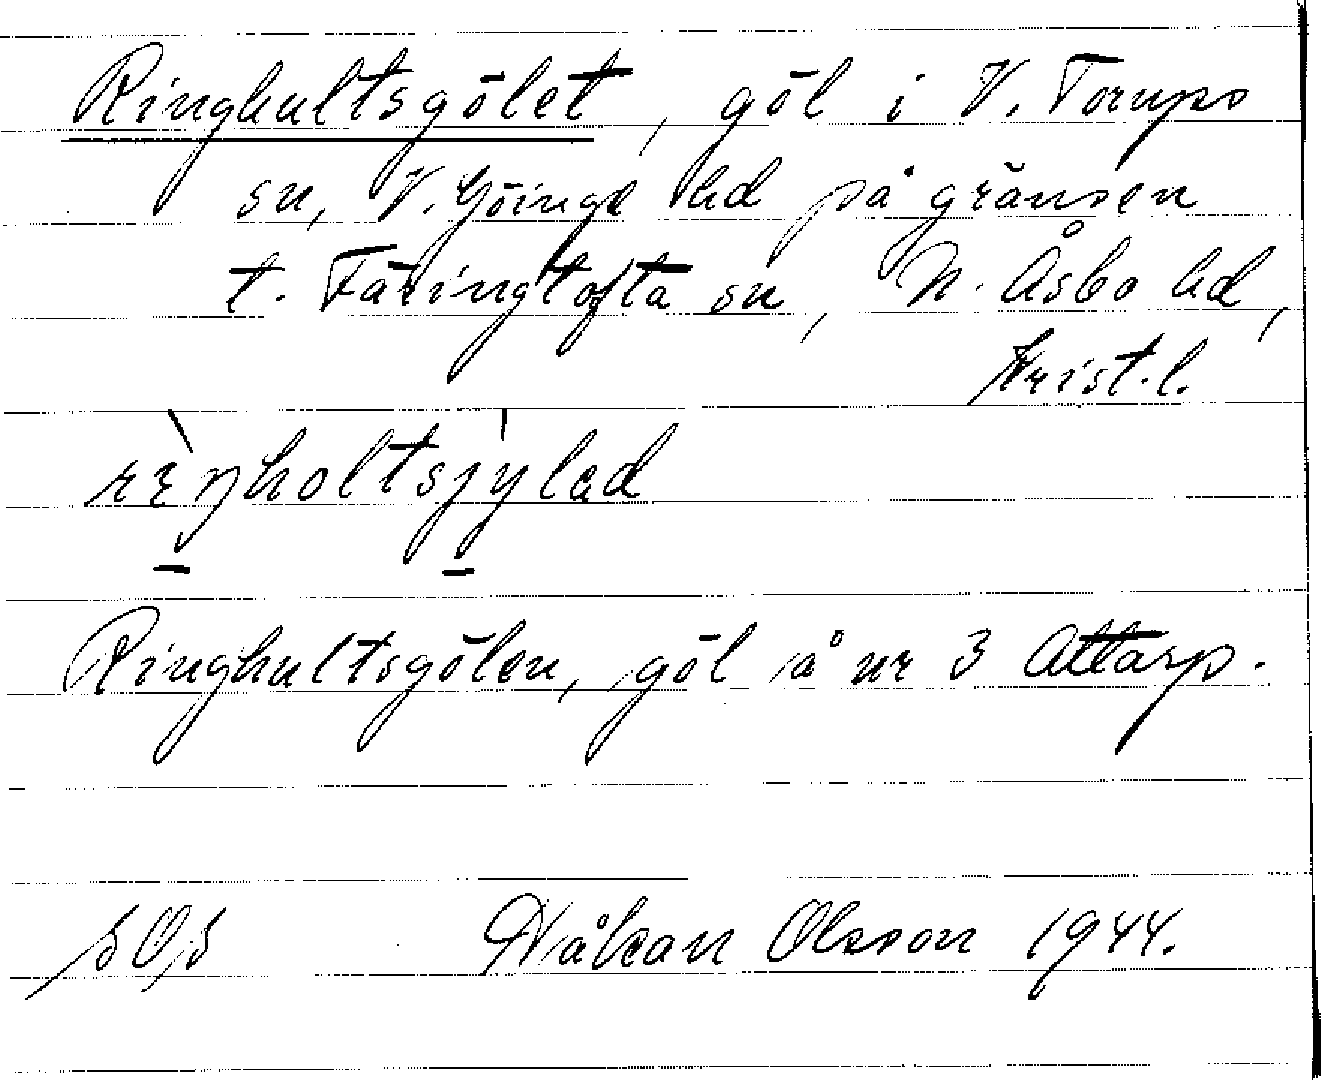 Ringhultsgölet, göl i V. Torups
sn, V. Göinge hd på gränsen
t. Färingtofta sn, N. Åsbo hd,
Krist. l.
Ringhultsgölen, göl å nr 3 Attarp.
Håkan Olsson 1944.